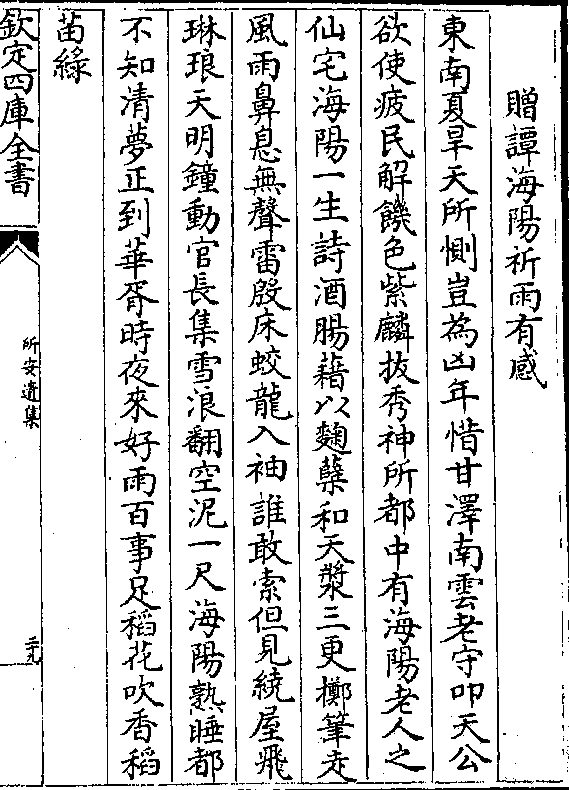 贈譚海陽祈雨有感
東南夏旱天所惻豈為凶年惜甘澤南雲老守叩天公
欲使疲民解饑色紫麟拔秀神所都中有海陽老人之
仙宅海陽一生詩酒腸藉以麴糵和天漿三更擲筆走
風雨鼻息無聲雷殷床蛟龍入袖誰敢索但見繞屋飛
琳琅天明鐘動官長集雪浪翻空泥一尺海陽熟睡都
不知清夢正到華胥時夜來好雨百事足稻花吹香稻
苗綠
欽定四庫全書
所安遺集
二十九